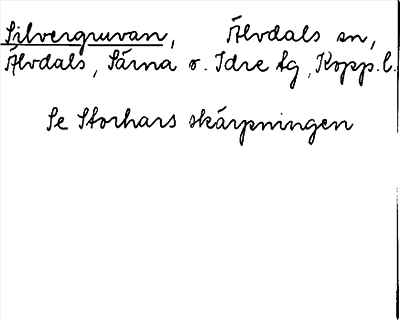 Silvergruvan, Älvdals sn,
Älvdals, Särna o. Idre tg, Kopp. l.
Se Storhars skärpningen